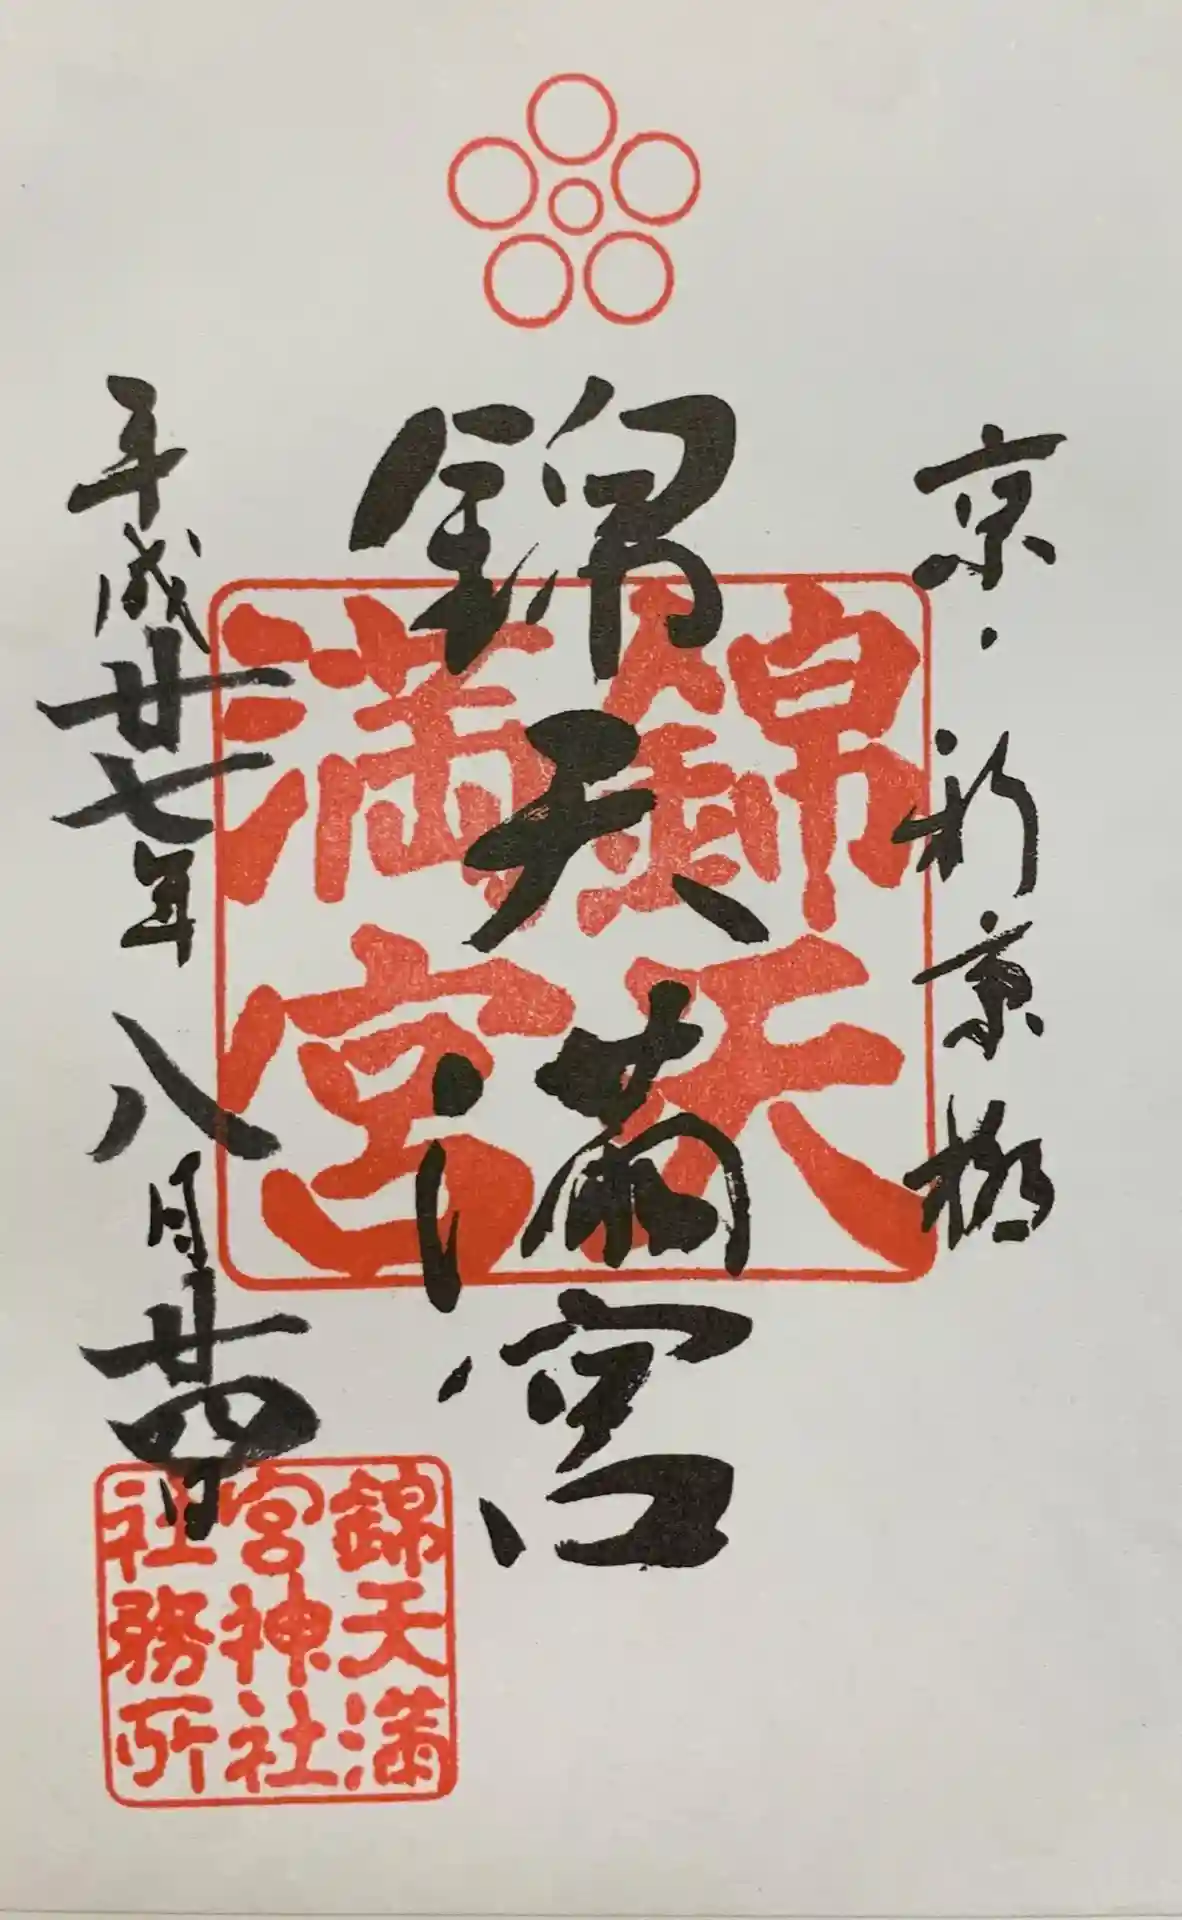 京・新京極
錦天満宮
錦天満宮
平成廿七年八月廿四日
錦天満
宮神社
社務所